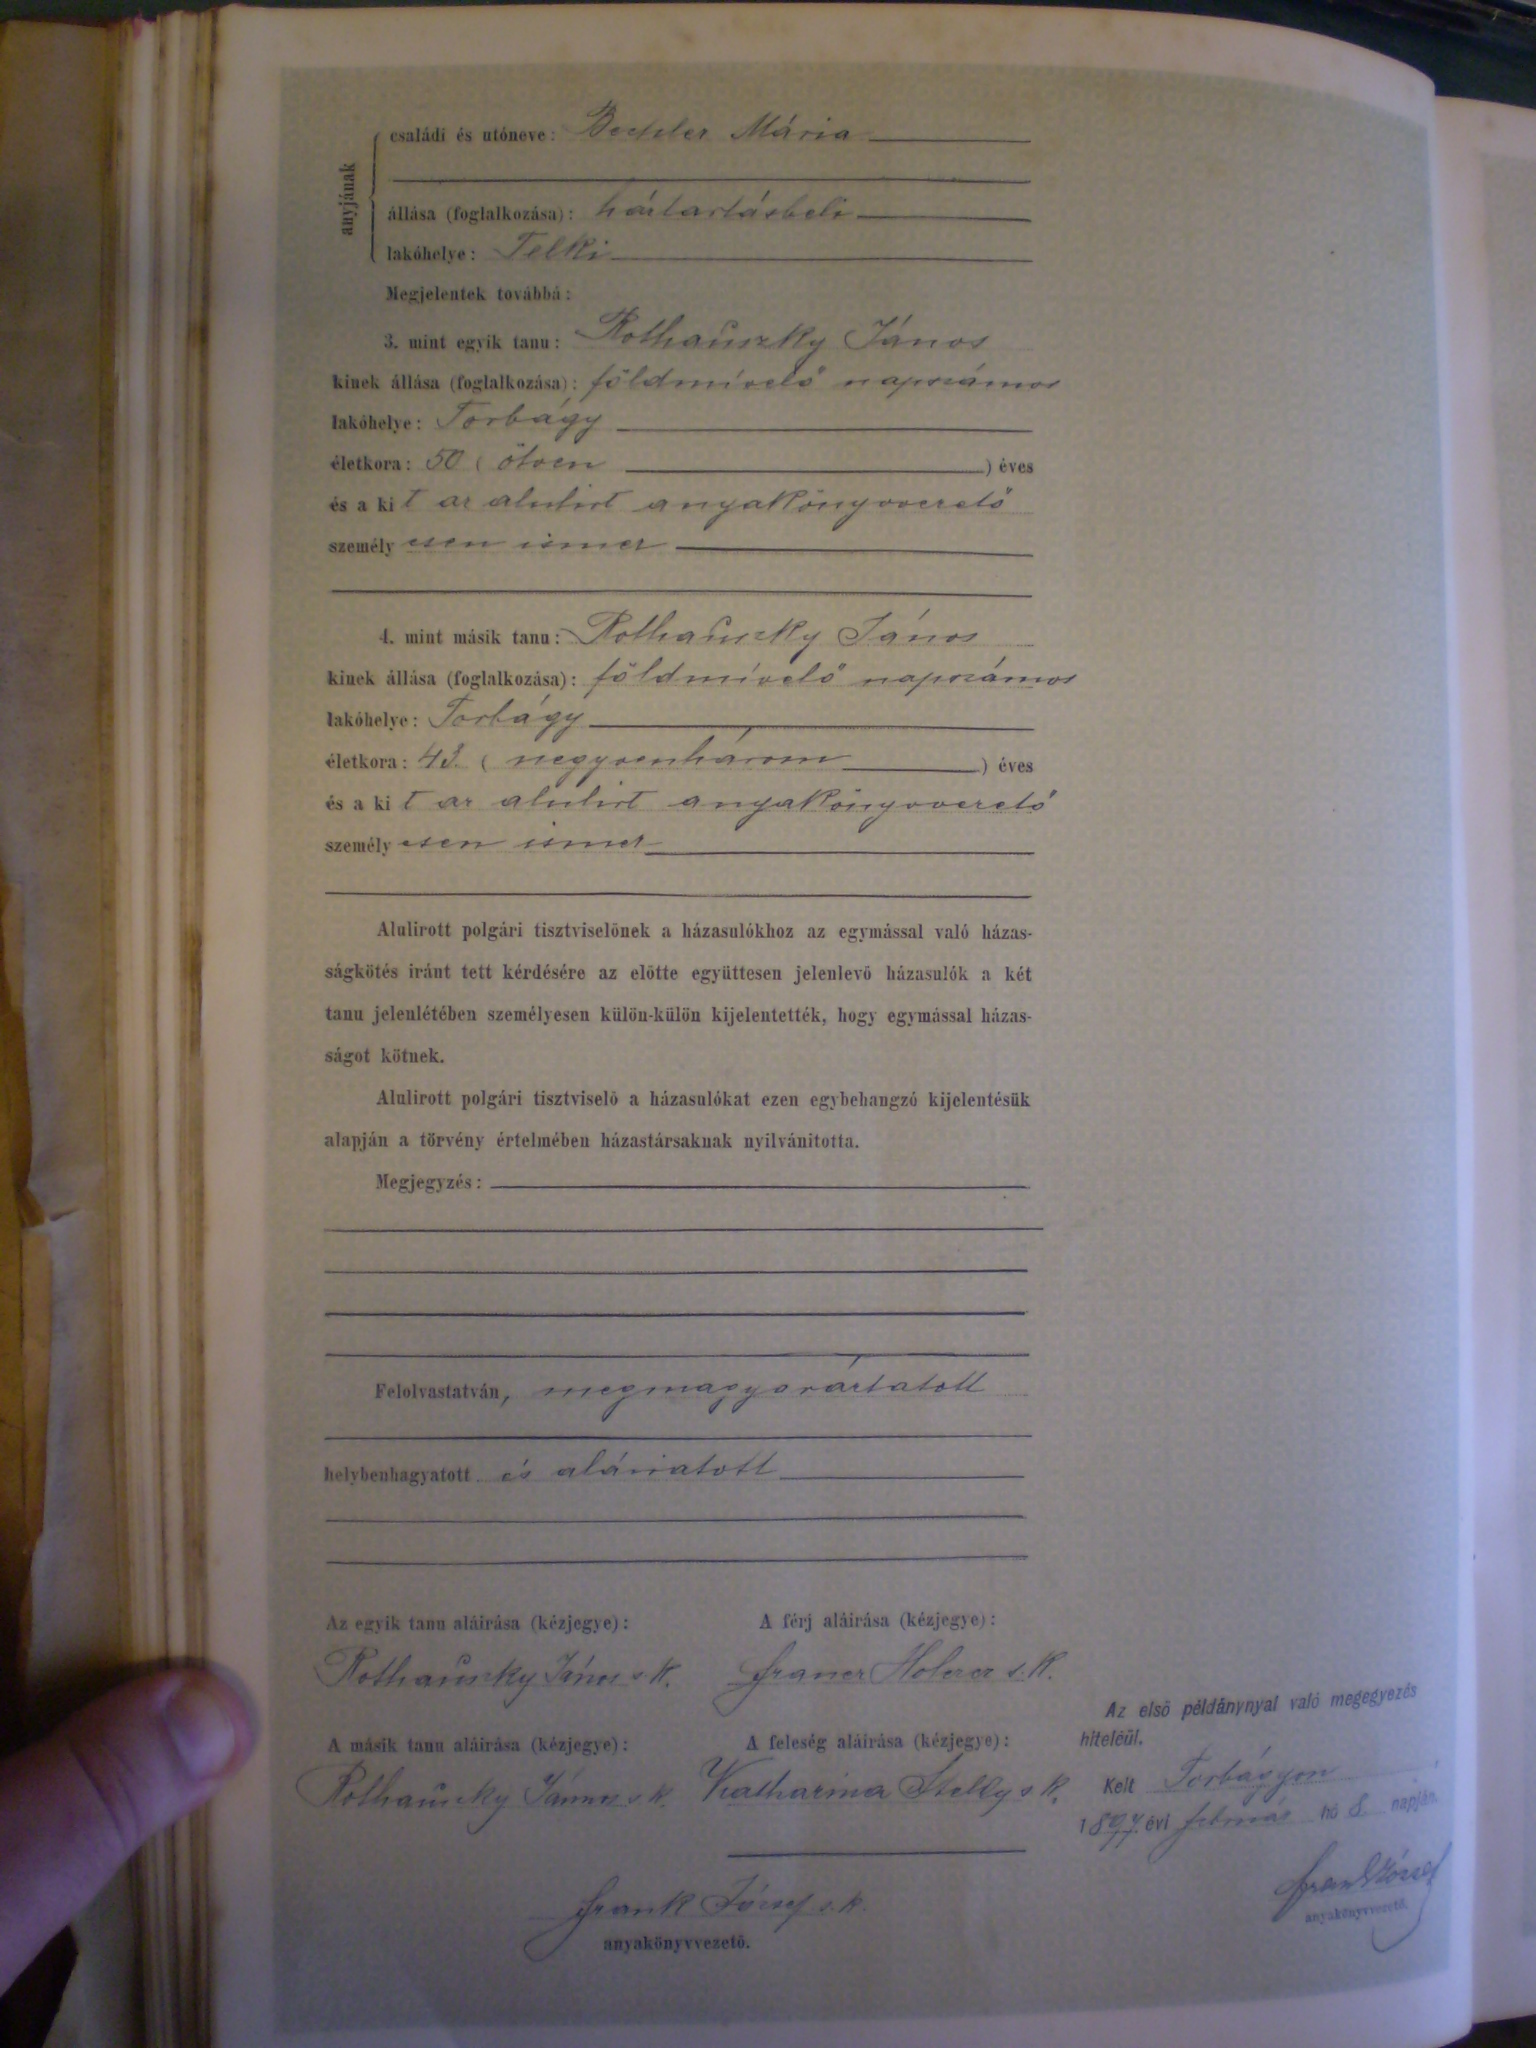 anyjának
családi és utóneve: Bechler Mária
állása (foglalkozása): háztartásbeli
lakóhelye: Telki
Megjelentek továbbá:
3. mint egyik tanu: Rothauszky János
kinek állása (foglalkozása): földmívelő napszámos
lakóhelye: Torbágy
életkora: 50 (ötven) éves
és a kit az alulirt anyakönyvvezető
személyesen ismer
4. mint másik tanu: Rothauszky János
kinek állása (foglalkozása): földmívelő napszámos
lakóhelye: Torbágy
életkora: 43. (negyvenhárom) éves
és a kit az alulirt anyakönyvvezető
személyesen ismer
Alulirott polgári tisztviselőnek a házasulókhoz az egymással való házas-
ságkötés iránt tett kérdésére az előtte együttesen jelenlevő házasulók a két
tanu jelenlétében személyesen külön-külön kijelentették, hogy egymással házas-
ságot kötnek.
Alulirott polgári tisztviselő a házasulókat ezen egybehangzó kijelentésük
alapján a törvény értelmében házastársaknak nyilvánitotta.
Megjegyzés:
Felolvastatván, megmagyaráztatott
helybenhagyatott és aláiratott
Az egyik tanu aláirása (kézjegye): A férj aláirása (kézjegye):
Rothauszky János s.k. Franer s.k.
A másik tanu aláirása (kézjegye): A feleség aláirása (kézjegye):
Rothauszky János s.k. Katharina Stelly s.k.
Frank József s.k.
anyakönyvvezető.
Az első példánynyal való megegyezés
hiteléül.
Kelt Torbágyon
1897 évi február hó 8. napján.
Frank József
anyakönyvvezető.